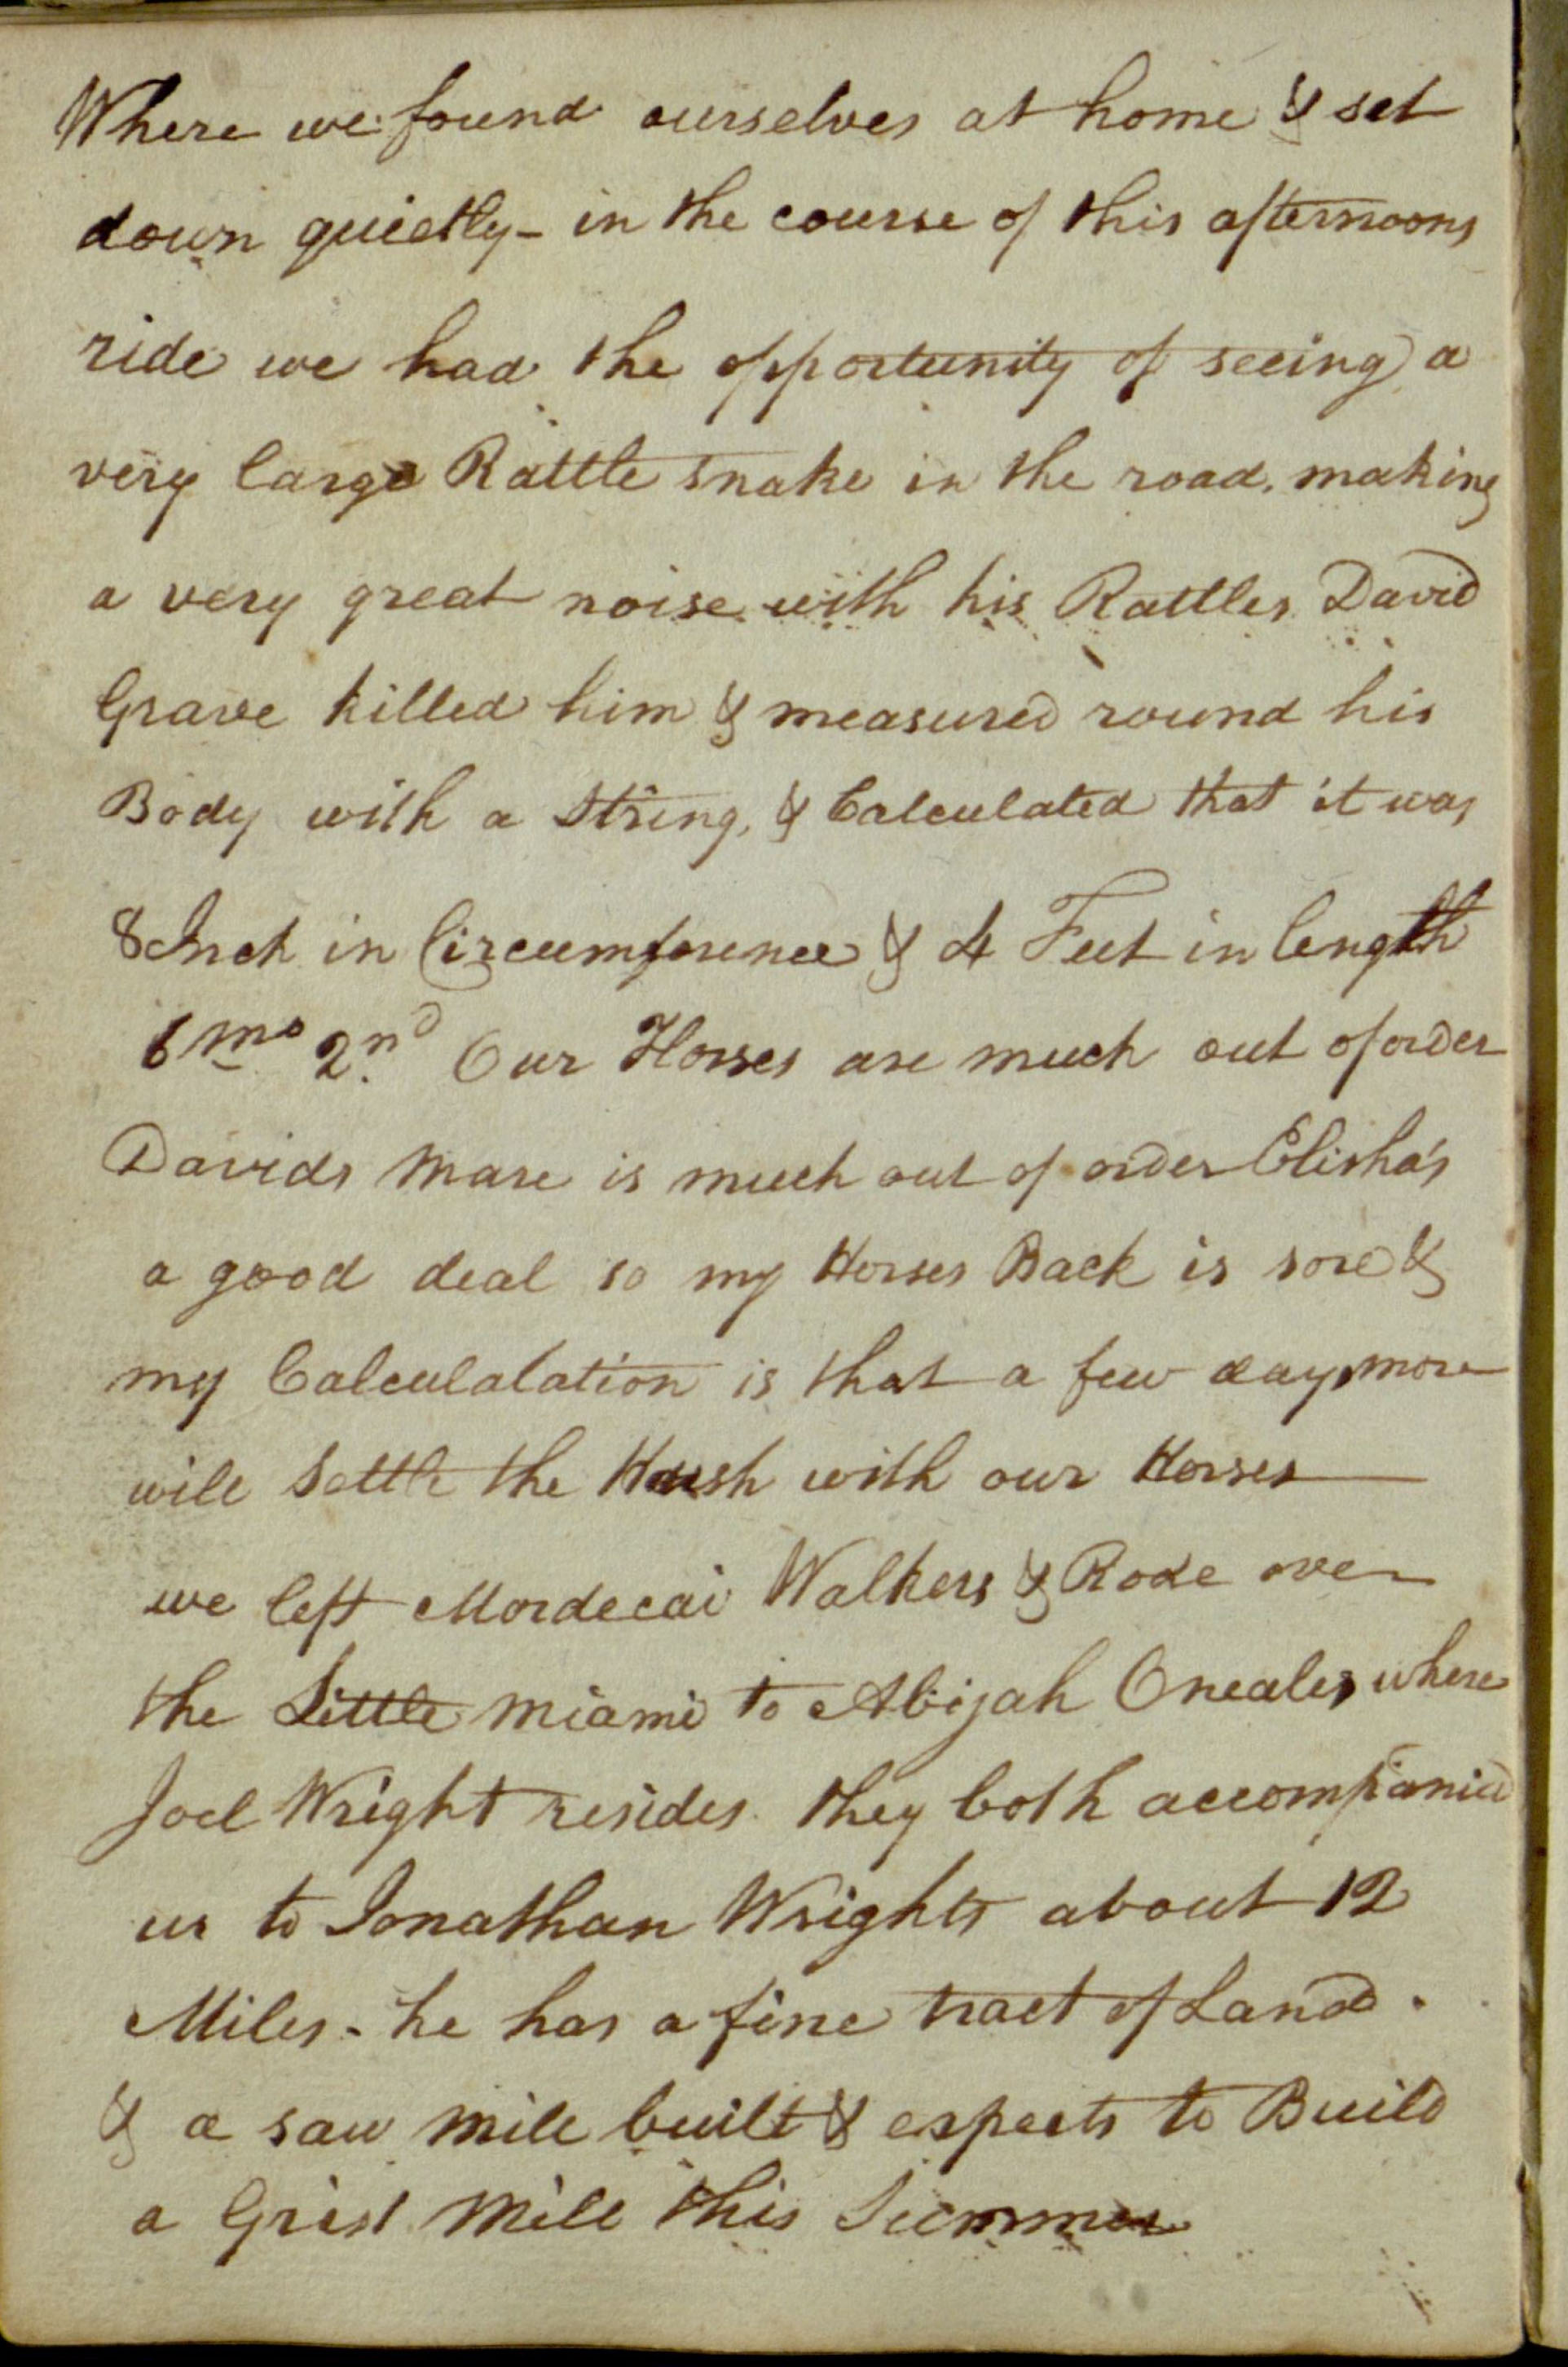 Where we found ourselves at home & set
down quietly - in the course of this afternoons
ride we had the opportunity of seeing a
very large Rattle snake in the road, making
a very great noise with his Rattles David
Grave killed him & measured round his
Body with a string, & Calculated that it was
8 Inch in Circumference & 4 Feet in length
6mo 2nd Our Horses are much out of order
Davids mare is much out of order Elisha's
a good deal so my Horses Back is sore &
my Calculalation is that a few days more
will settle the Hash with our Horses
we left Mordecai Walkers & Rode over
the Little Miami to Abijah Oneales where
Joel Wright resides they both accompanied
us to Jonathan Wrights about 12
Miles - he has a fine tract of Land.
& a saw mill built & expects to Build
a Grist Mill this Summer